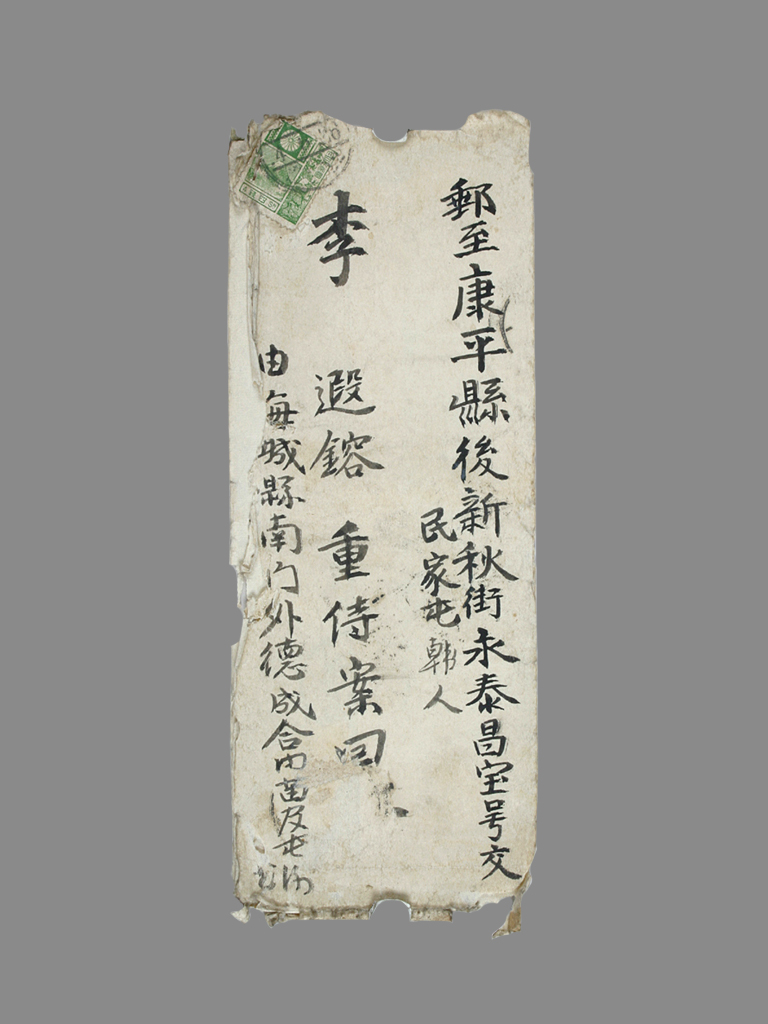 郵至康平縣後新秋街永泰昌宝号交
民家屯韓人
李 遐鎔 重侍案回
由海城縣南门外德成合内